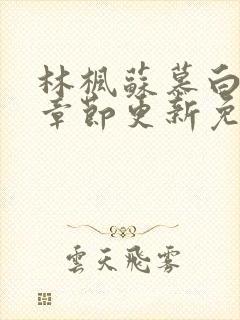 林楓蘇慕白
章節更新免
雲天飛霧